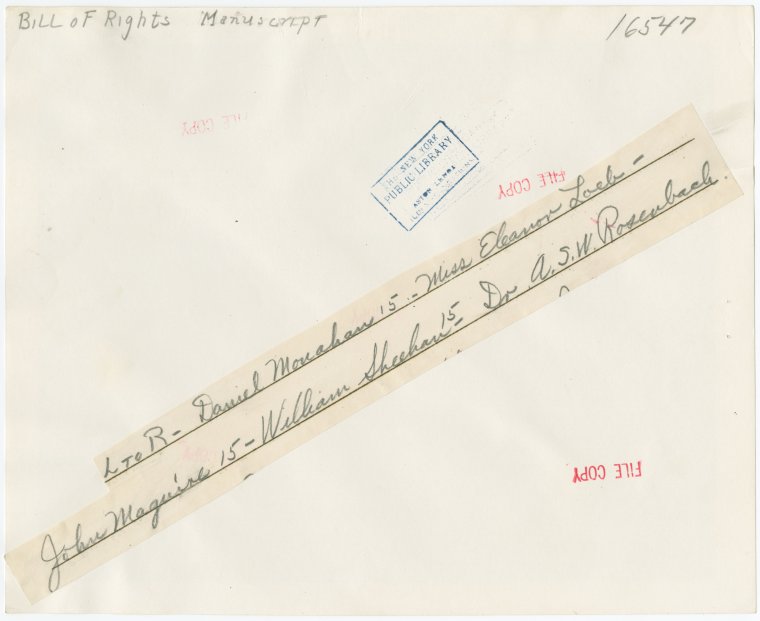 BILL OF Rights Manuscript
16547
FILE COPY
THE NEW YORK
PUBLIC LIBRARY
ASTOR LENOX
FILE COPY
L TO R - Daniel Monahan 15 - Miss Eleanor Loeb -
John Maguire 15 - William Sheehan 15 - Dr A.S.W. Rosenbach.
FILE COPY